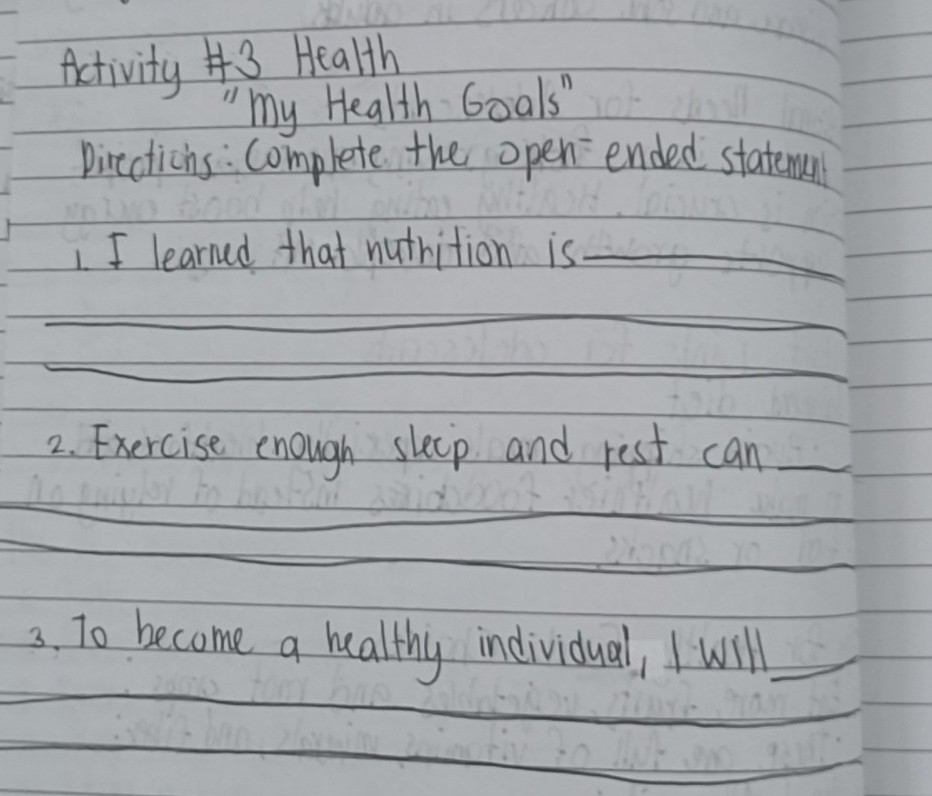 Activity #3 Health
"My Health Goals"
Directions: Complete the open-ended statement
1. I learned that nutrition is
2. Exercise enough sleep and rest can
3. To become a healthy individual, I will